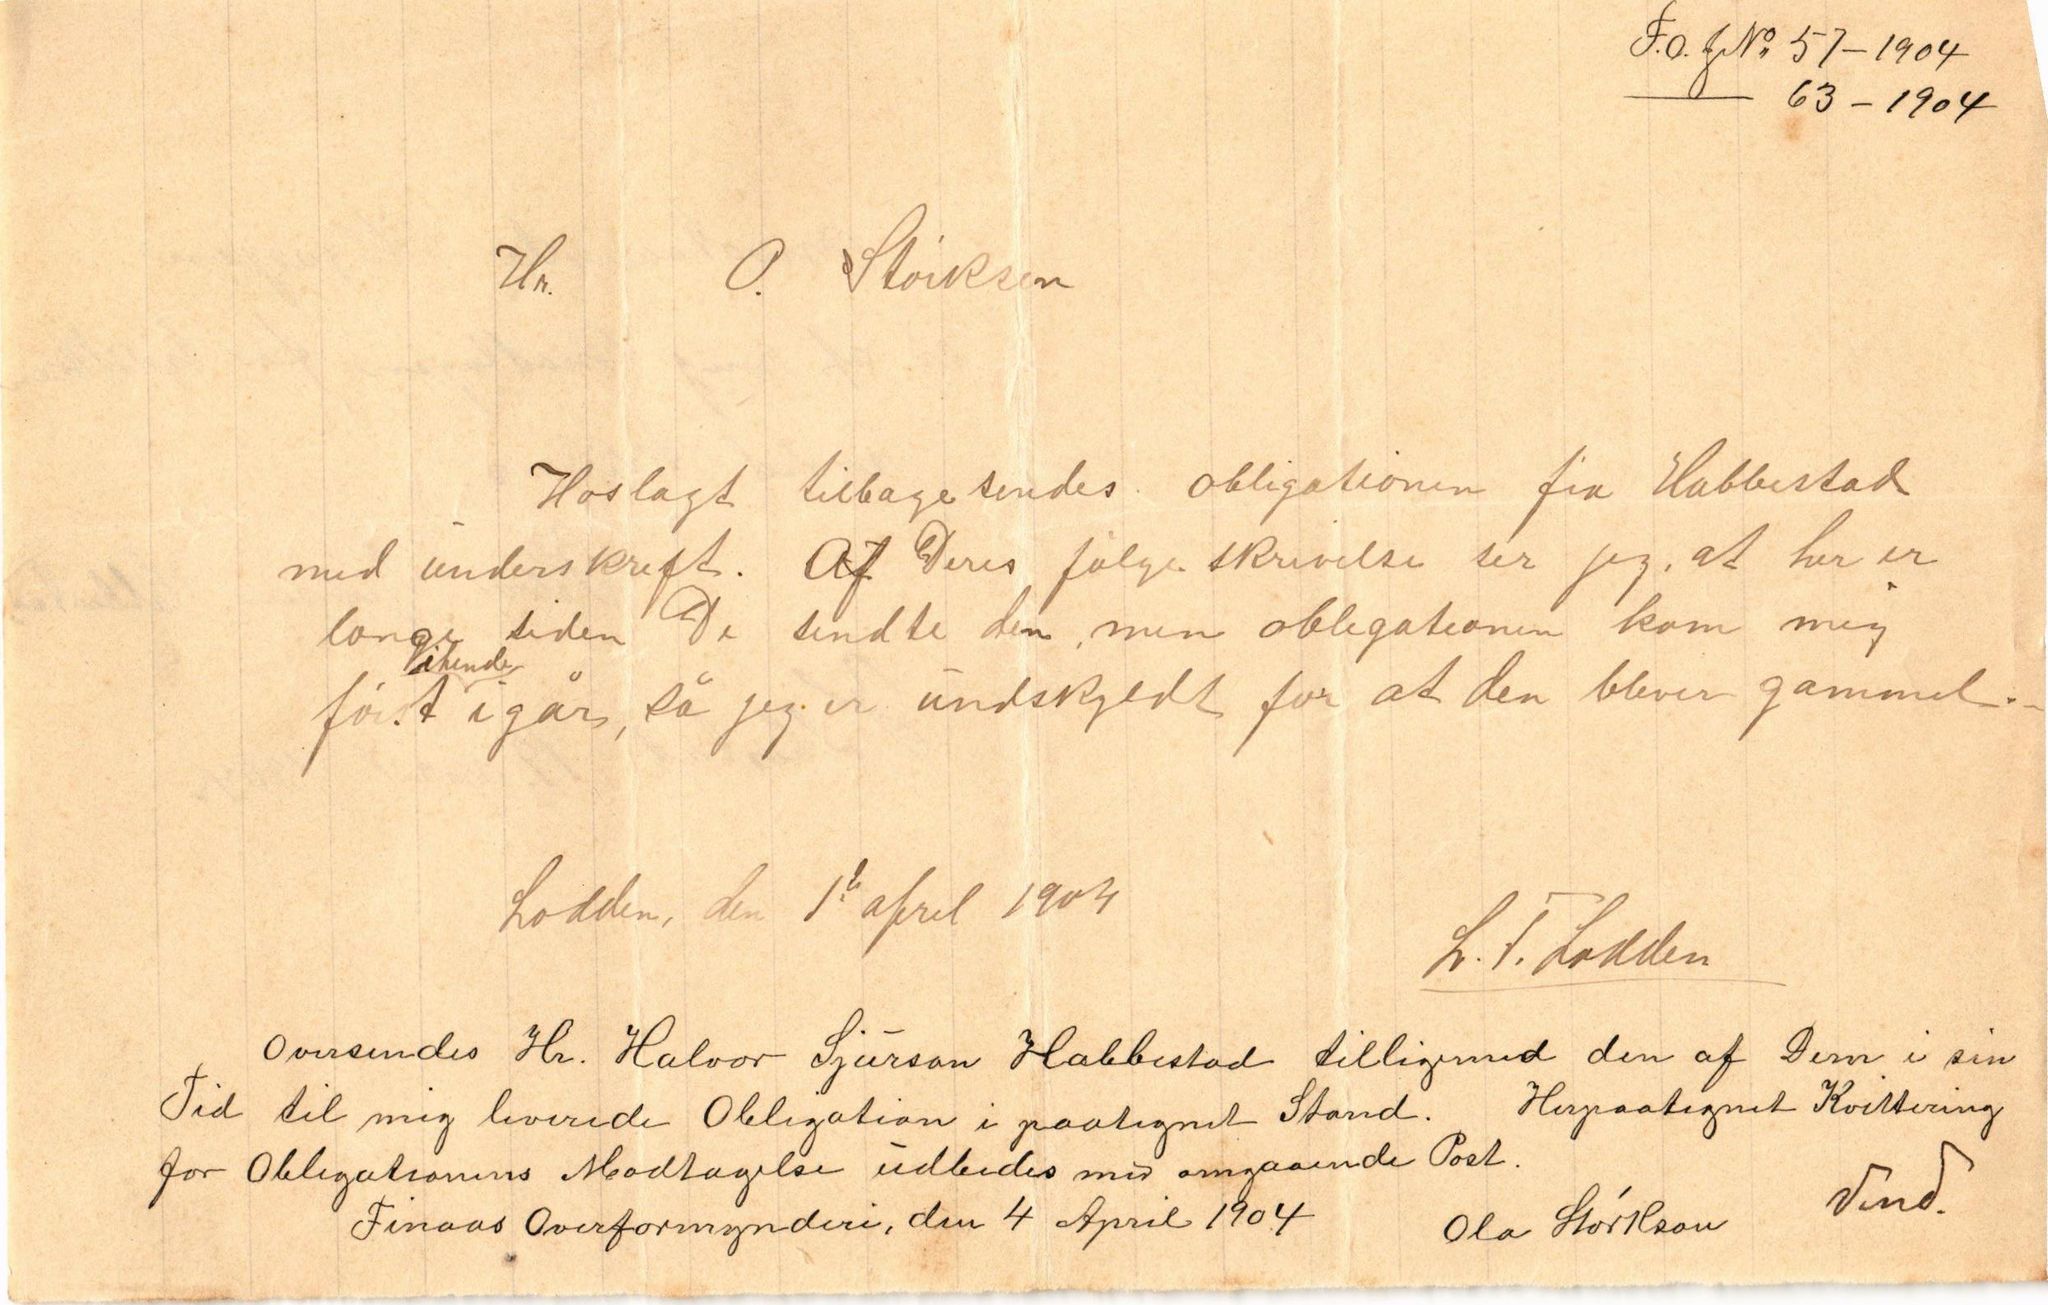 F.O.j No 57–1904
63–1904
Hr. O. Störksen
Hoslagt tilbagesendes obligationen fra Habbestad
med underskrift. Af Deres følgeskrivelse ser jeg, at her er
længe siden De sendte den, men obligationen kom mig
ihænde
først igår, så jeg er undskyldt for at den blever gammel.–
Lodden, den 1ste april 1904
L. T. Lodden
Oversendes Hr. Halvor Sjurson Habbestad tilligemed den af Dem i sin
Tid til mig leverede Obligation i paategnet Stand. Herpaategnet Kvittering
for Obligationens Modtagelse udbedes med omgaaende Post.
Finaas Overformynderi, den 4 April 1904
Ola Störkson
Vend.